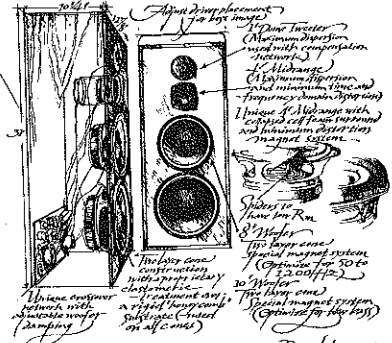 10¼"
Adjust driver placement
for best image
1" Dome Tweeter
(Maximum dispersion
used with compensation
network)
Midrange
(Maximum dispersion
and minimum time and
frequency domain distortion)
Unique 4" Midrange with
cell foam surround
and minimum distortion
magnet system
Spiders to
have low Rm
8" Woofer
Two layer cone
special magnet system
(Optimize for 50 to
1200 Hz)
10" Woofer
Two layer cone
Special magnet system
(Optimize for low bass)
Two layer cone
construction
with proprietary
elastometric
treatment over
a rigid honeycomb
substrate (used
on all cones)
Unique crossover
network with
adjustable woofer
damping